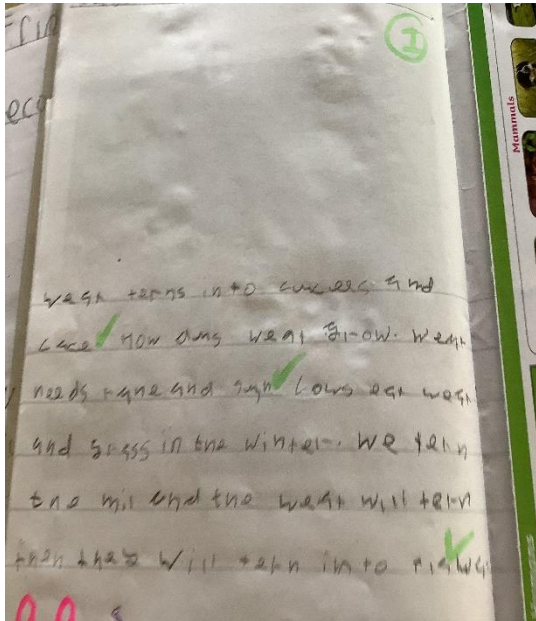 weat terns into cuccecs and
cace how dus weat grow. weat
needs rane and sun cows eat weat
and grass in the winter. we tern
the mil and the weat will tern
then they will tern in to
Mammals